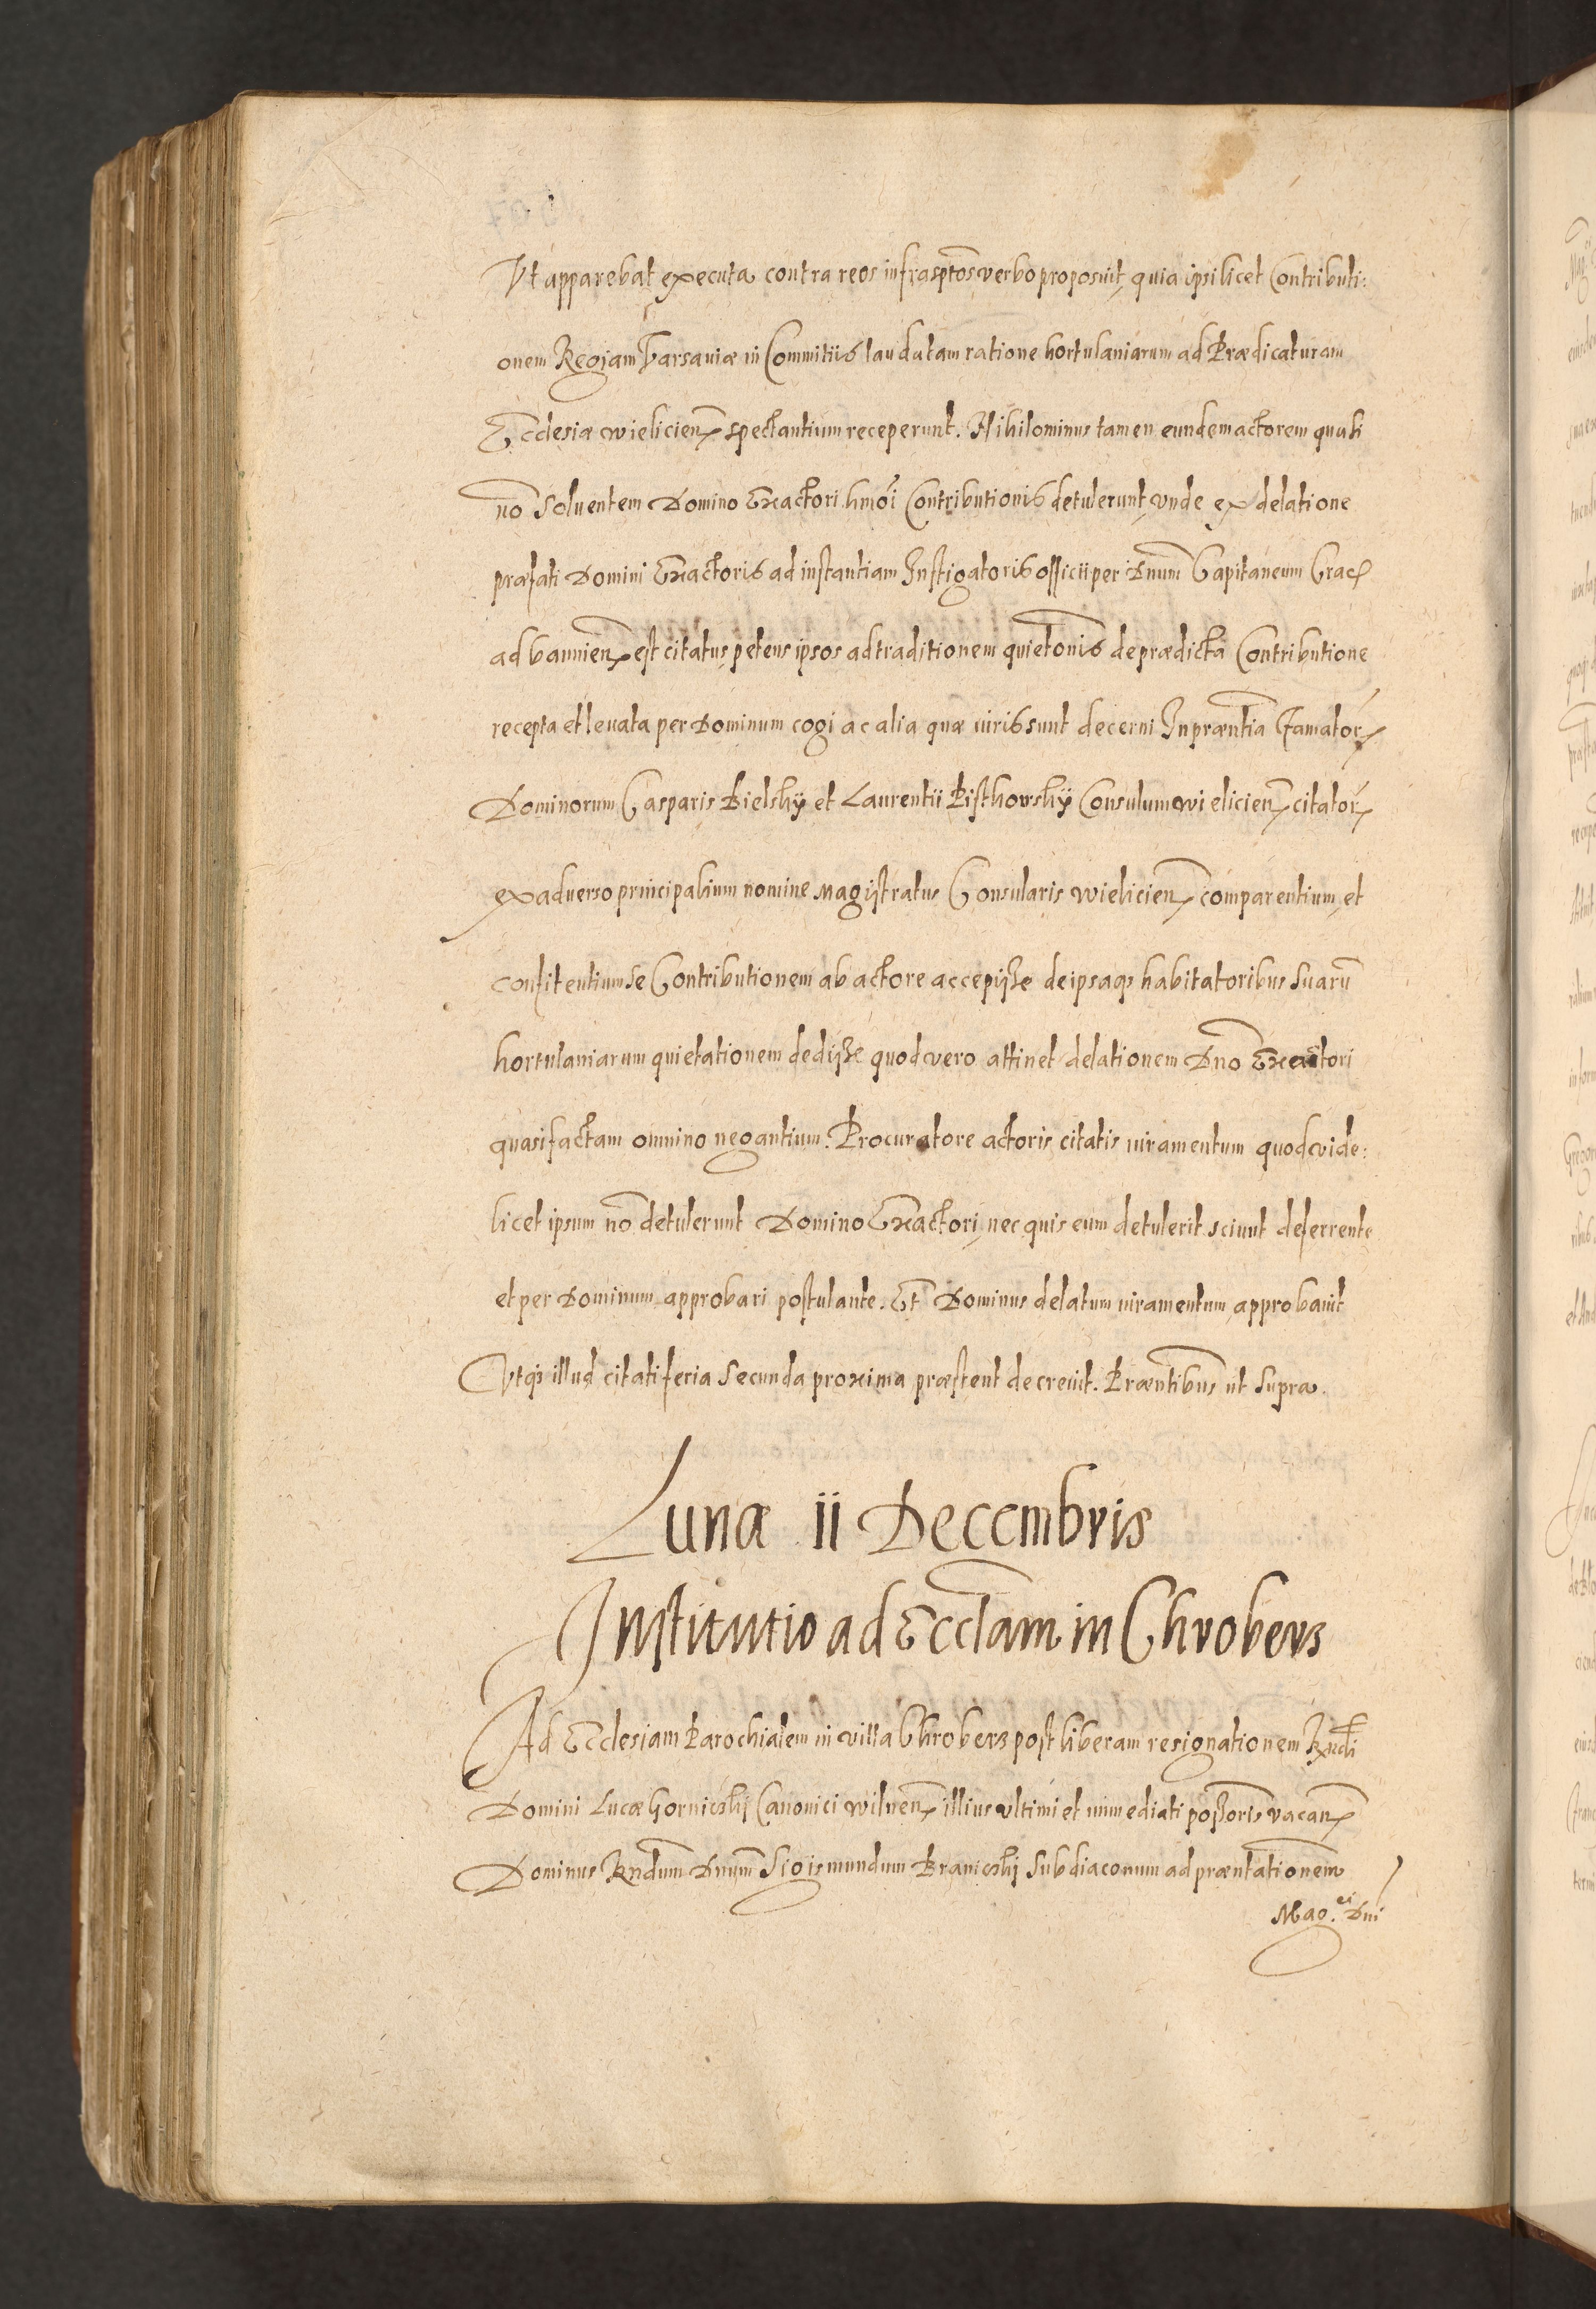 Vt apparebat executa contra reos infrasptos verbo proposuit, quia ipsi licet Contributi:
onem Regiam Varsauiæ in Commitiis laudatam ratione hortulaniarum ad Prædicaturam
Ecclesiæ wielicien spectantium receperunt. Nihilominus tamen eundem actorem quasi
no soluentem Domino Exactori hmoi Contributionis detulerunt, vnde ex delatione
præfati Domini Exactoris ad instantiam Instigatoris officii per Dnum Capitaneum Crac
ad bannien est citatus petens ipsos ad traditionem quietonis de prædicta Contributione
recepta et leuata per Dominum cogi ac alia quæ iuris sunt decerni In præntia Famator
Dominorum Casparis Bielsky et Laurentii Pisthorsky Consulum wielicien citator
ex aduerso principalium nomine Magistratus Consularis wielicien comparentium, et
confitentium se Contributionem ab actore accepisse de ipsaq habitatoribus suaru
hortulaniarum quietationem dedisse quod vero attinet delationem Dno Exactori
quasi factam omnino negantium. Procuratore actoris citatis iuramentum quod vide:
licet ipsum no detulerunt Domino Exactori, nec quis eum detulerit sciunt deferrente
et per Dominum approbari postulante. Et Dominus delatum iuramentum approbauit
Vtq illud citati feria secunda proxima præstent decreuit. Præntibus ut supra.
Lunæ ii Decembris
Institutio ad Ecclam in Chrobers
Ad Ecclesiam Parochialem in villa Chrobers post liberam resignationem Rndi
Domini Lucæ Gornicski Canonici wilnen illius vltimi et immediati possoris vacan
Dominus Rndum Dnum Sigismundum Branicski Subdiaconum ad præntationem
Mag.ci Dni